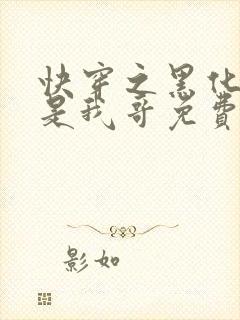 快穿之黑化
是我哥免费
影如